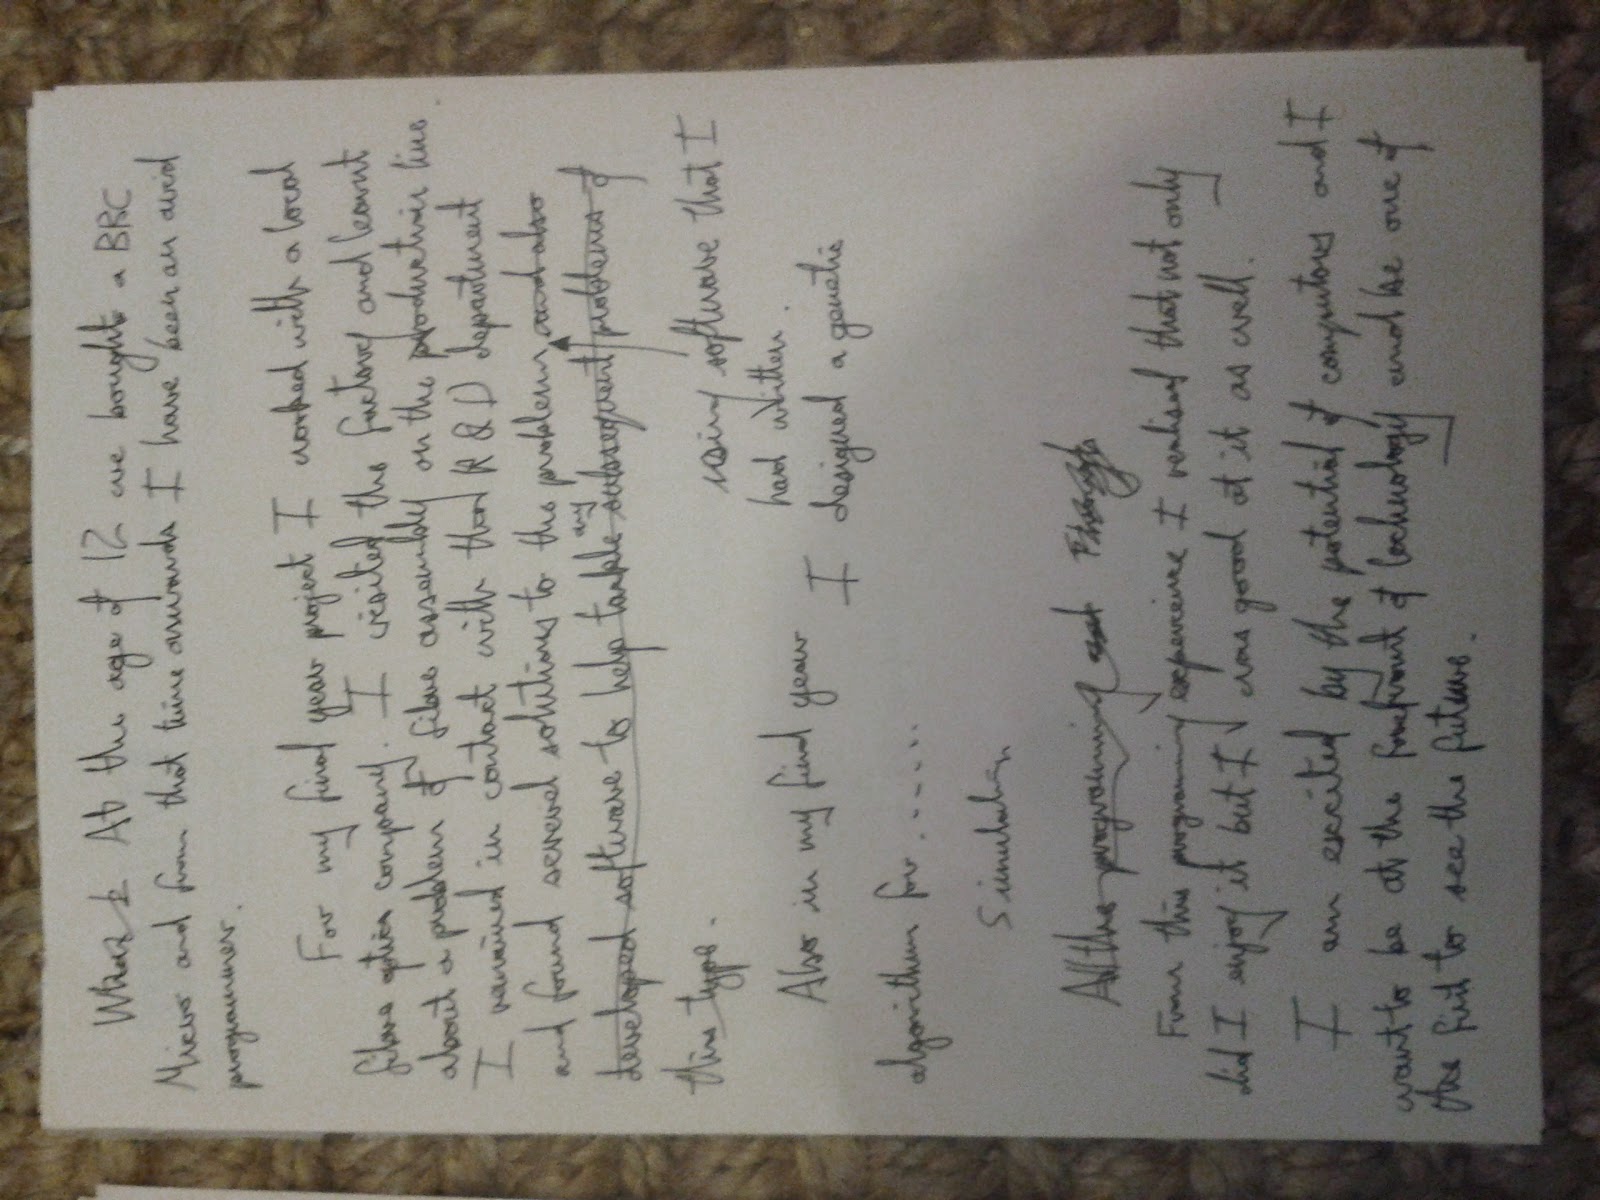 When I At the age of 12 we bought a BBC
Micro and from that time onwards I have been an avid
programmer.
For my final year project I worked with a local
fibre optics company. I visited the factory and learnt
about a problem of fibre assembly on the production line.
I remained in contact with their R & D department
and found several solutions to the problem and also
developed software to help tackle any subsequent problems of
this type.
using software that I
had written.
Also in my final year I designed a genetic
algorithm for ......
Simulation
All this programming and Through
From this programming experience I realised that not only
did I enjoy it but I was good at it as well.
I am excited by the potential of computers and I
want to be at the forefront of technology and be one of
the first to see the future.